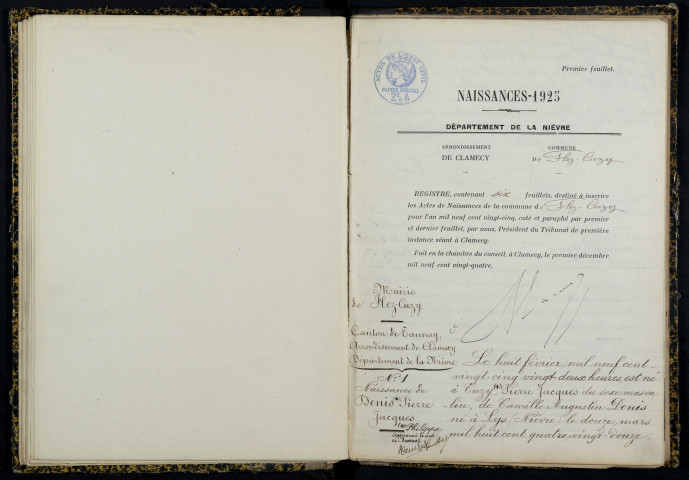 Premier feuillet.
ACTES DE L'ÉTAT CIVIL
PAPIER SPÉCIAL
NAISSANCES-1925
DÉPARTEMENT DE LA NIÈVRE
ARRONDISSEMENT
DE CLAMECY
COMMUNE
DE Flez-Cuzy
REGISTRE, contenant six feuillets, destiné à inscrire
les Actes de Naissances de la commune de Flez-Cuzy
pour l'an mil neuf cent vingt-cinq, coté et paraphé par premier
et dernier feuillet, par nous, Président du Tribunal de première
instance séant à Clamecy.
Fait en la chambre du conseil, à Clamecy, le premier décembre
mil neuf cent vingt-quatre.
Mairie
de Flez-Cuzy
Canton de Tannay,
Arrondissement de Clamecy
Département de la Nièvre
N° 1
Naissance de
Denis Pierre
Jacques
Philippe
Le huit février mil neuf cent
vingt cinq vingt deux heures, est né
à Cuzy, Pierre Jacques du sexe mascu-
lin, de Camille Augustin Denis
né à Lys (Nièvre) le douze mars
mil huit cent quatre vingt-douze,